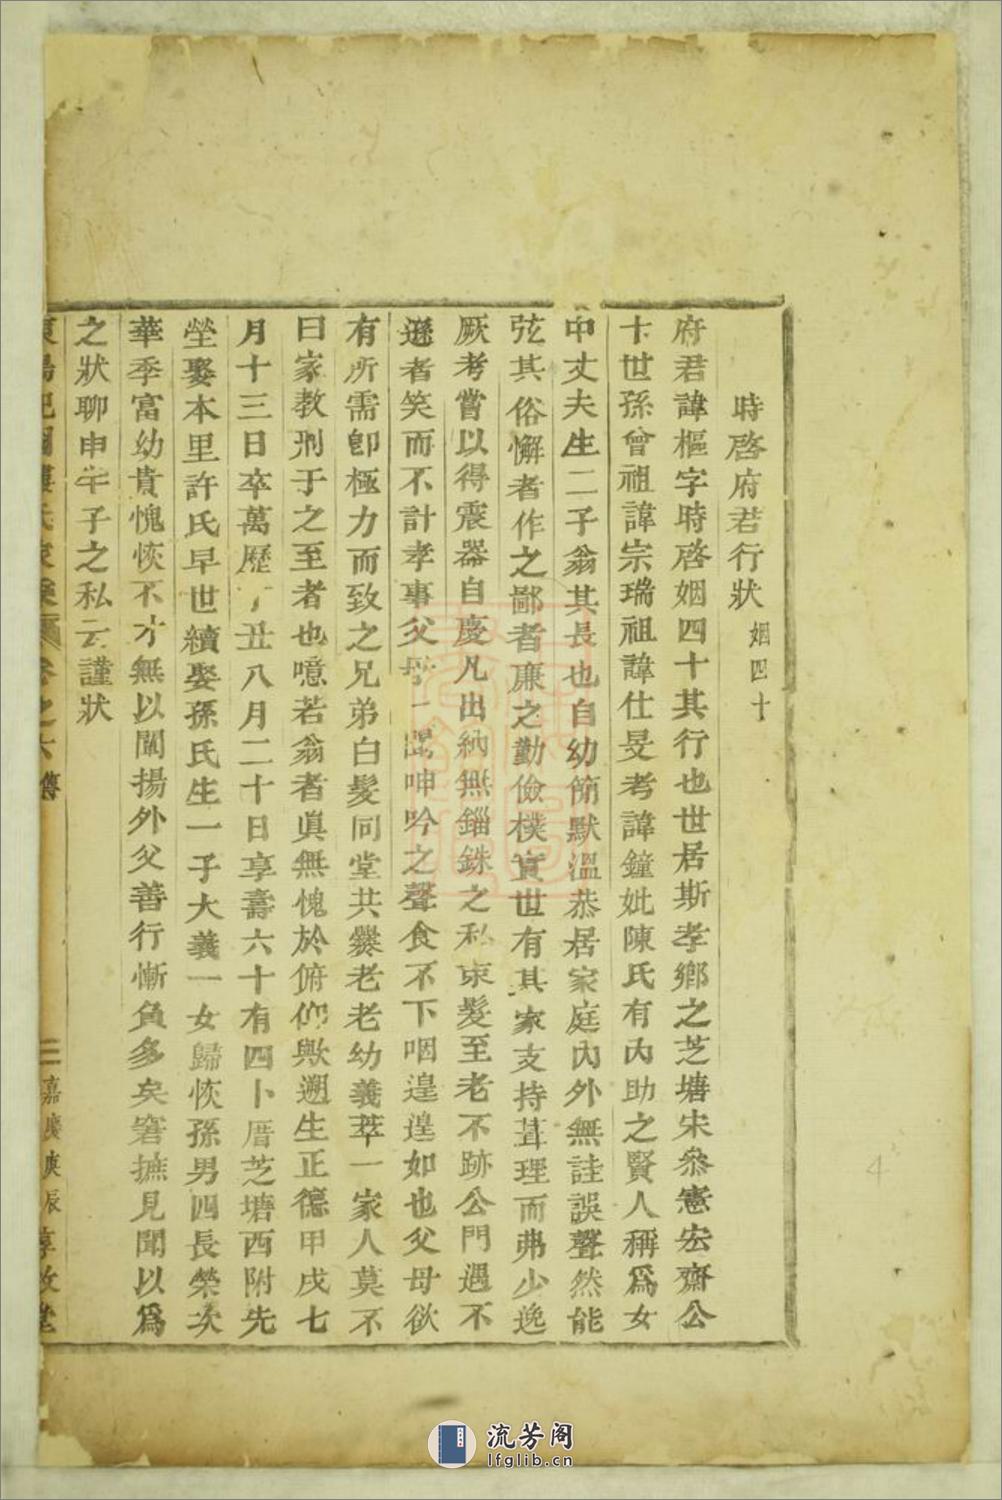 時啓府君行狀 姻四十
府君諱樞字時啓姻四十其行也世居斯孝鄉之芝塘宋叅憲宏齋公
十世孫曾祖諱宗瑞祖諱仕旻考諱鐘妣陳氏有內助之賢人稱爲女
中丈夫生二子翁其長也自幼簡默溫恭居家庭內外無詿誤聲然能
弦其俗懈者作之鄙者廉之勤儉樸實世有其家支持葺理而弗少逸
厥考嘗以得震器自慶凡出納無錙銖之私束髮至老不跡公門遇不
遜者笑而不計孝事父母一聞呻吟之聲食不下咽遑遑如也父母欲
有所需卽極力而致之兄弟白髮同堂共爨老老幼義萃一家人莫不
曰家教刑于之至者也噫若翁者眞無愧於俯仰歟遡生正德甲戌七
月十三日卒萬歷丁丑八月二十日享壽六十有四卜厝芝塘西附先
塋娶本里許氏早世續娶孫氏生一子大義一女歸恢孫男四長榮次
華季富幼貴愧恢不才無以闡揚外父善行慚負多矣窘摭見聞以爲
之狀聊申半子之私云謹狀
卷之六傳 三 嘉慶庚辰享敘堂
流芳阁
lfglib.cn
4